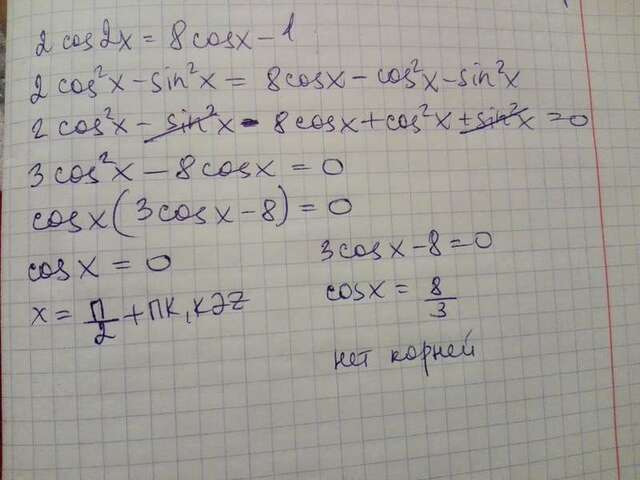 2 cos2x = 8cosx - 1
2 cos²x - sin²x = 8cosx - cos²x - sin²x
2 cos²x - sin²x - 8cosx + cos²x + sin²x = 0
3cos²x - 8cosx = 0
cosx(3cosx - 8) = 0
cosx = 0
x = п/2 + пк, к∈Z
3cosx - 8 = 0
cosx = 8/3
нет корней